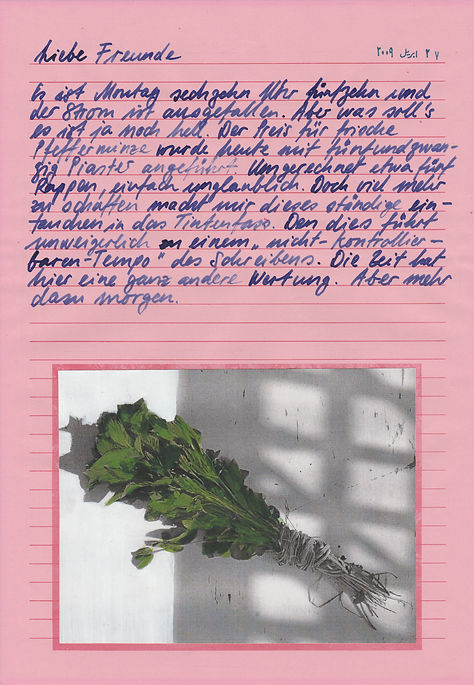 Liebe Freunde
٢٧ ابريل ٢٠٠٩
Es ist Montag sechzehn Uhr fünfzehn und
der Strom ist ausgefallen. Aber was soll's
es ist ja noch hell. Der Preis für frische
Pfefferminze wurde heute mit fünfundzwan-
zig Piaster angeführt. Umgerechnet etwa fünf
Rappen, einfach unglaublich. Doch viel mehr
zu schaffen macht mir dieses ständige ein-
tauchen in das Tintenfass. Den dies führt
unweigerlich zu einem „nicht-kontrollier-
baren-Tempo“ des Schreibens. Die Zeit hat
hier eine ganz andere Wertung. Aber mehr
dazu morgen.